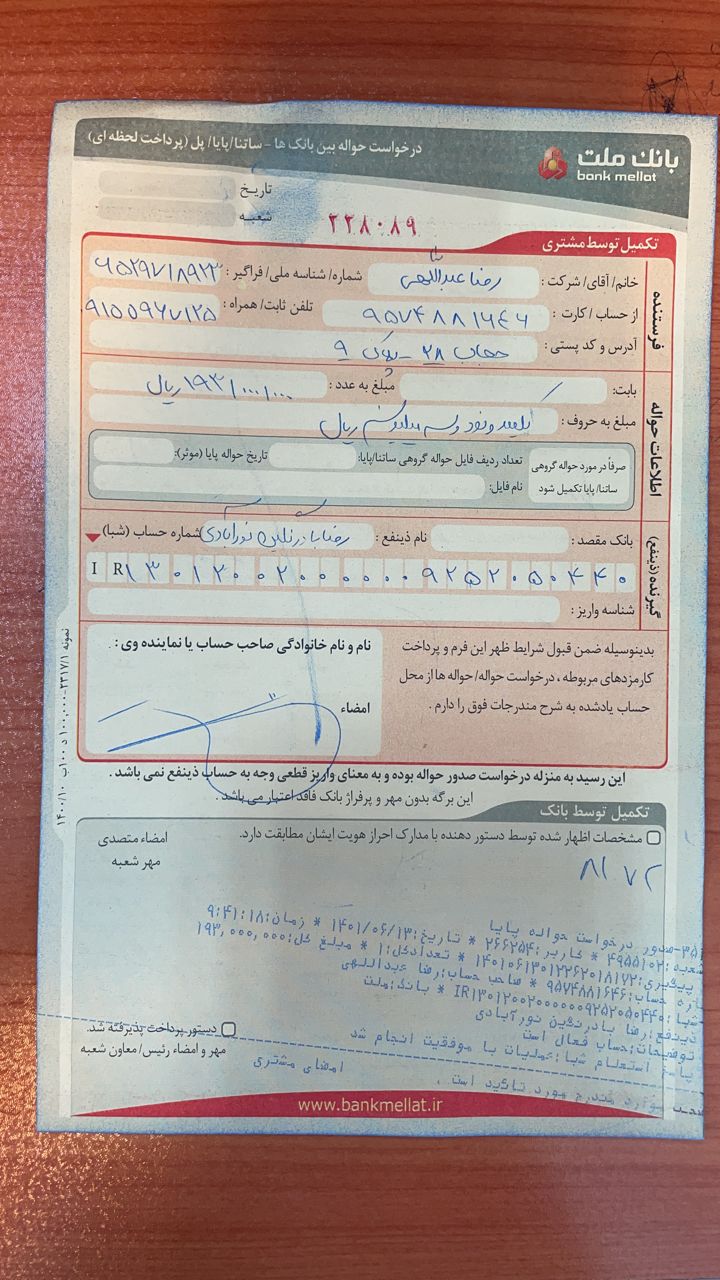 بانک ملت
bank mellat
درخواست حواله بین بانک ها - ساتنا/پایا/ پل (پرداخت لحظه ای)
تاریخ
شعبه
۲۲۸۰۸۹
تکمیل توسط مشتری
فرستنده
خانم/ آقای/ شرکت: رضا عبداللهی شماره/ شناسه ملی/ فراگیر: ۶۵۲۹۷۱۸۹۲۳
از حساب / کارت: ۹۵۷۴۸۸۱۶۴۶ تلفن ثابت/ همراه: ۹۱۵۵۹۶۷۱۲۵
آدرس و کد پستی: ۲۸ - پلاک ۹
اطلاعات حواله
بابت: مبلغ به عدد: ۱۹۳/۰۰۰/۰۰۰ ریال
مبلغ به حروف: یکصد و نود و سه میلیون ریال
صرفاً در مورد حواله گروهی ساتنا/ پایا تکمیل شود
تعداد ردیف فایل حواله گروهی ساتنا/پایا: تاریخ حواله پایا (موثر):
نام فایل:
گیرنده (ذینفع)
بانک مقصد: نام ذینفع: رضا بادرنگین نورآبادی شماره حساب (شبا)
IR۱۳۰۱۲۰۰۲۰۰۰۰۰۰۹۲۵۲۰۵۰۴۴۰
شناسه واریز:
بدینوسیله ضمن قبول شرایط ظهر این فرم و پرداخت
کارمزدهای مربوطه، درخواست حواله/ حواله ها از محل
حساب یادشده به شرح مندرجات فوق را دارم.
نام و نام خانوادگی صاحب حساب یا نماینده وی:
امضاء
این رسید به منزله درخواست صدور حواله بوده و به معنای واریز قطعی وجه به حساب ذینفع نمی باشد.
این برگه بدون مهر و پرفراژ بانک فاقد اعتبار می باشد.
تکمیل توسط بانک
مشخصات اظهار شده توسط دستور دهنده با مدارک احراز هویت ایشان مطابقت دارد.
امضاء متصدی
مهر شعبه
۸۱۷۲
صدور درخواست حواله پایا
شعبه:۴۹۵۵۱۰۲ * کاربر:۲۶۶۲۵۴ * تاریخ:۱۴۰۱/۰۶/۱۳ * زمان:۹:۴۱:۱۸
پیگیری:۱۴۰۱۰۶۱۳۰۱۲۲۶۲۰۱۸۱۷۲ * تعدادکل:۱ * مبلغ کل:۱۹۳,۰۰۰,۰۰۰
حساب:۹۵۷۴۸۸۱۶۴۶ * صاحب حساب:رضا عبداللهی
شبا:IR۱۳۰۱۲۰۰۲۰۰۰۰۰۰۹۲۵۲۰۵۰۴۴۰ * بانک:ملت
ذینفع:رضا بادرنگین نورآبادی
توضیحات:حساب فعال است
پاسخ استعلام شبا:عملیات با موفقیت انجام شد
صحت موارد مندرج مورد تائید است.
امضای مشتری
دستور پرداخت پذیرفته شد.
مهر و امضاء رئیس/ معاون شعبه
www.bankmellat.ir